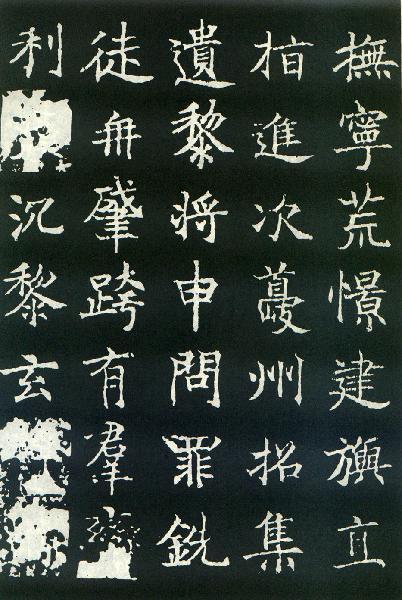 撫寧荒憬建旟立
進次夔州招集
遺黎将申問罪銑
徒冉肇跨有羣
利沉黎玄